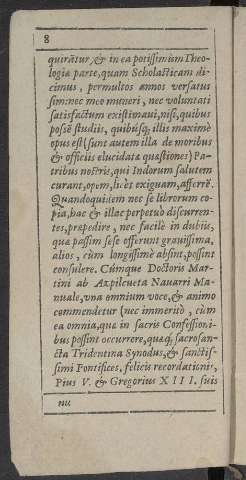 8
quirãtur, & in ea potissimum Theo-
logiæ parte, quam Scholasticam di-
cimus, permultos annos versatus
sim: nec meo muneri, nec voluntati
satisfactum existimaui, nisi, quibus
possẽ studiis, quibúsq; illis maximè
opus est (sunt autem illa de moribus
& officiis elucidata quæstiones) Pa-
tribus nostris, qui Indorum salutem
curant, opem, licet exiguam, afferrẽ.
Quandoquidem nec se librorum co-
pia, hac & illac perpetuò discurren-
tes, præpedire, nec facilè in dubiis,
quæ passim sese offerunt grauissima,
alios, cùm longissimè absint, possint
consulere. Cúmque Doctoris Mar-
tini ab Azpilcueta Nauarri Ma-
nuale, vna omnium voce, & animo
commendetur (nec immeritò, cùm
ea omnia, quæ in sacris Confessioni-
bus possint occurrere, quæq; sacrosan-
cta Tridentina Synodus, & sanctis-
simi Pontifices, felicis recordationis,
Pius V. & Gregorius XIII. suis
nu